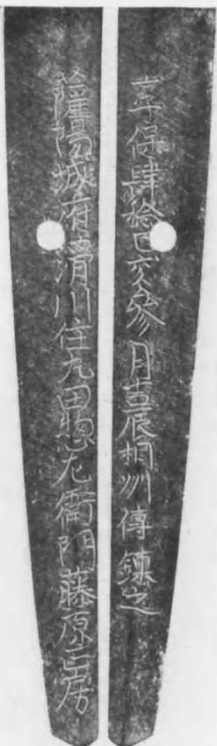 享保肆稔己亥参月吉辰相州傳錬之
薩陽城府滑川住丸田惣左衛門藤原正房